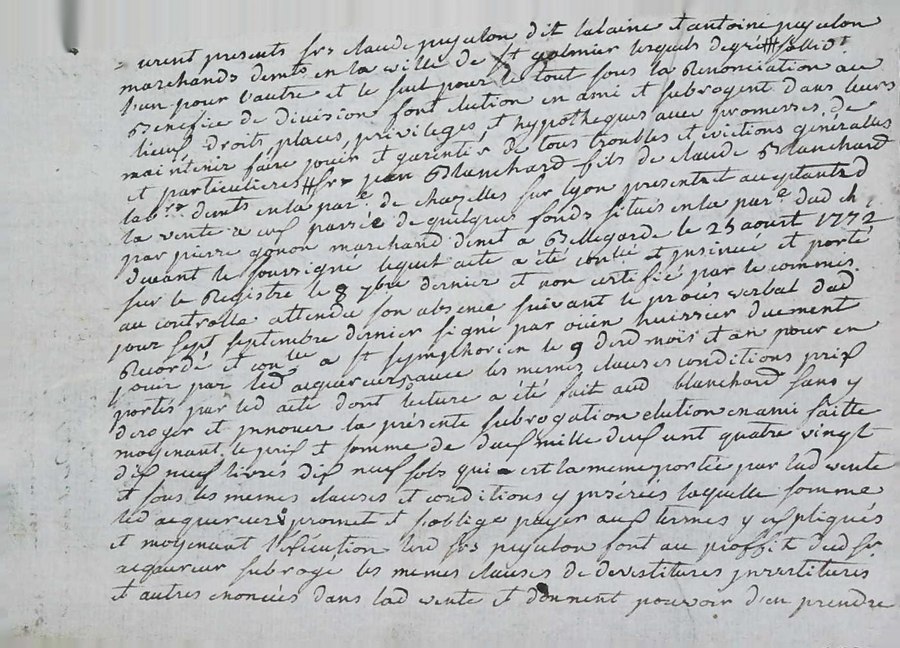 urent presents srs claude pupulon dit lalaine et antoine pupulon
marchands demts en la ville de st galmier lesquels de gré # sollid.t
l'un pour l'autre et le seul pour le tout sous la Renonciation au
Benefice de division font elution en ami et subrogent dans leurs
lieux droits places privileges et hypotheques avec promesses de
maintenir faire jouir et garentir de tous troubles et evictions générallés
et particulieres # sr jean Blanchard fils de claude Blanchard
labr. demts en la par.e de chazelles sur lyon present et acceptant d
la vente a eux passée de quelques fonds situés en la par.e dud ch,
par pierre gonon marchand demt a Bellegarde le 25 aoust 1772
devant le souvsigné lequel acte a été conllé et jnsinué et porté
sur le Registre le 8 7bre dernier et non certifié par le commis
au controlle attendu son absence suivant le procés verbal dud
jour sept septembre dernier signé par huissier duement
Recordé et conlle a st symphorien le 9 desd mois et an pour en
jouir par led acquereur sauce les memes clauses conditions prix
portés par led acte dont lecture a été fait aud blanchard sans y
deroger et jnnover la présente subrogation elution en ami faitte
moyenant le prix et somme de deux mille deux cent quatre vingt
dix neuf livres dix neuf sols qui est la meme portée par lad vente
et sous les memes clauses et conditions y jnsérées laquelle somme
led acquereur promet et s'oblige payer aux termes y expliqués
et moyenant l'exécution lesd srs pupulon font au proffit dud sr
acquereur subrogé les memes clauses de devestitures jnvestitures
et autres enoncées dans lad vente et donnent pouvoir d'en prendre